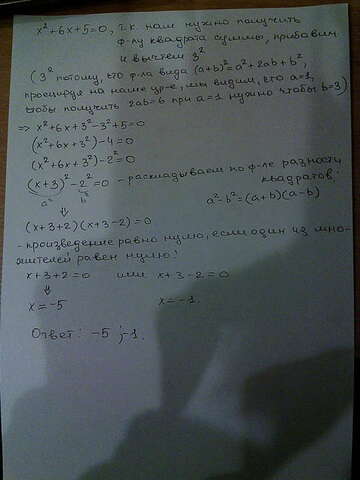 x²+6x+5=0, т.к. нам нужно получить
ф-лу квадрата суммы, прибавим
и вычтем 3²
(3² потому, что ф-ла вида (a+b)²=a²+2ab+b²,
проецируя на наше ур-е, мы видим, что a=1,
чтобы получить 2ab=6 при a=1 нужно чтобы b=3)
⇒ x²+6x+3²-3²+5=0
(x²+6x+3²)-4=0
(x²+6x+3²)-2²=0
(x+3)²-2²=0 - раскладываем по ф-ле разности
квадратов:
a² b²
a²-b²=(a+b)(a-b)
⇓
(x+3+2)(x+3-2)=0
- произведение равно нулю, если один из мно-
жителей равен нулю:
x+3+2=0 или x+3-2=0
⇓
x=-5 x=-1.
Ответ: -5; -1.